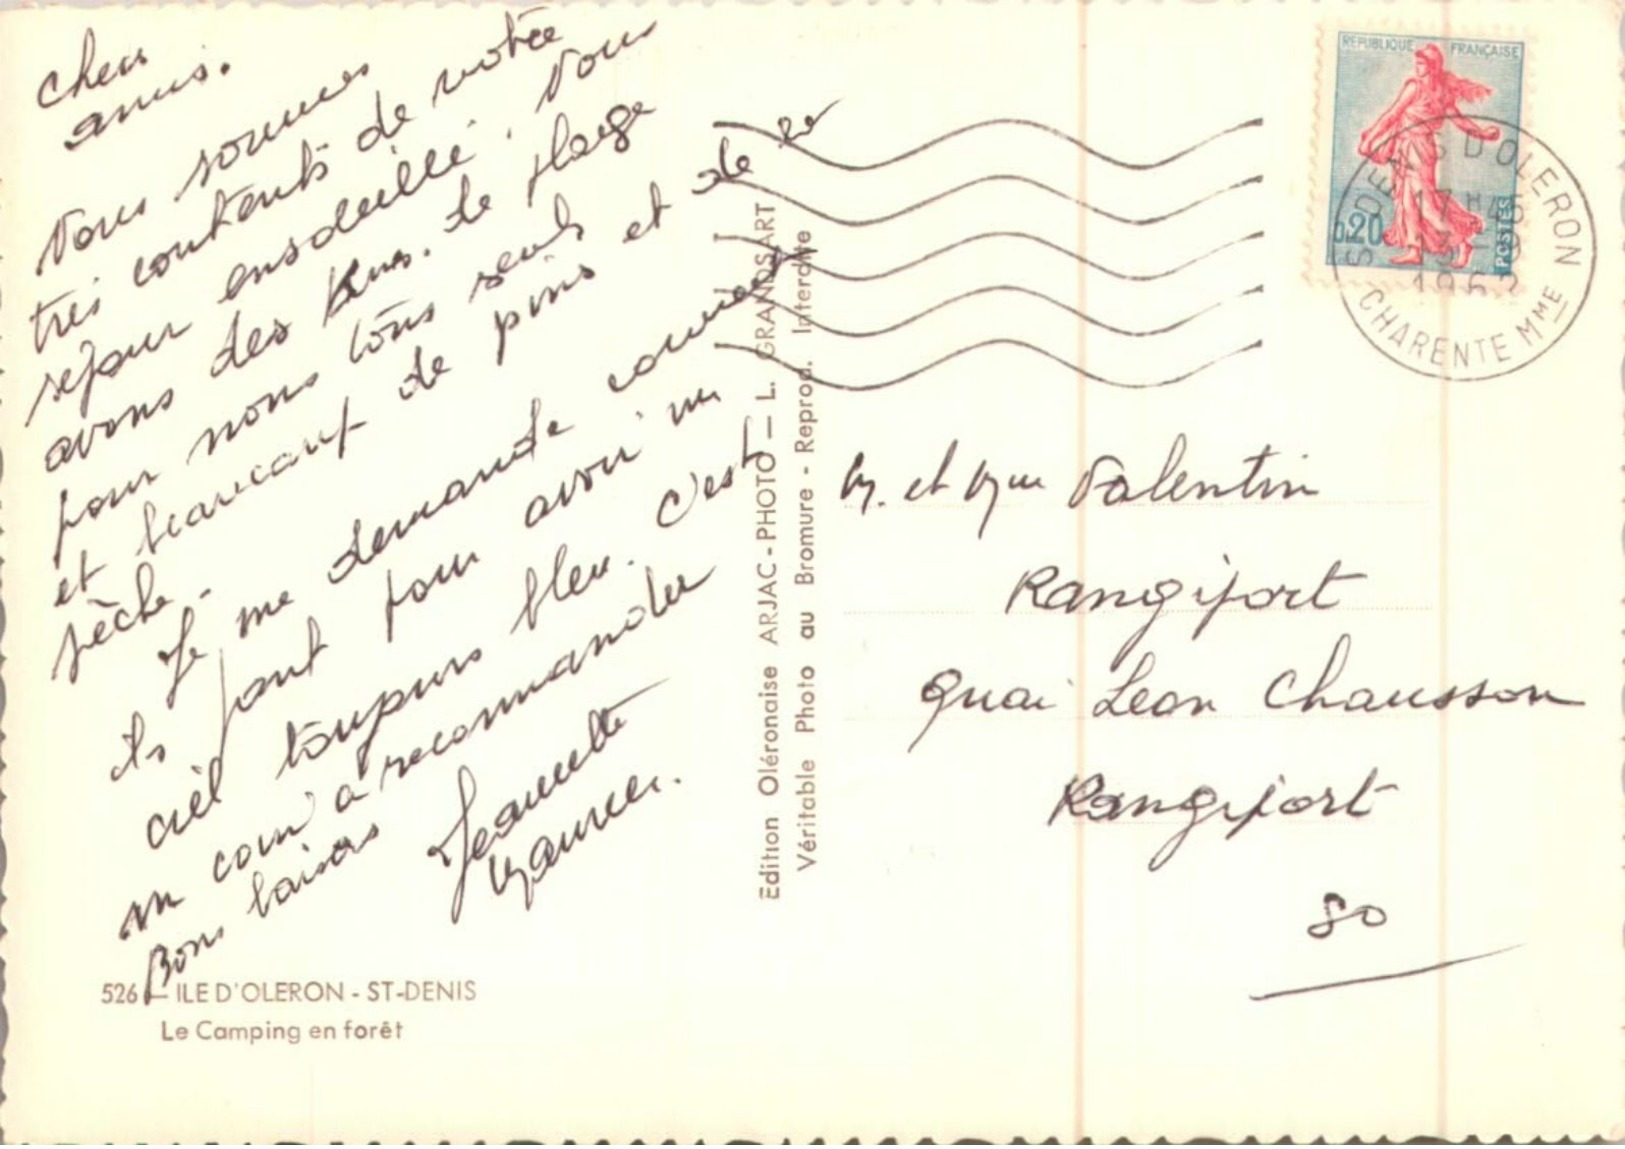 Chers
amis.
Nous sommes
très contents de notre
séjour ensoleillé. Nous
avons des kms. de plage
pour nous tous seuls
et beaucoup de pins et de la
pêche.
Je me demande comment
ils font pour avoir un
ciel toujours bleu. c'est
un coin à recommander
Bons baisers
Jeannette
Maurice.
526 — ILE D'OLERON - ST-DENIS
Le Camping en forêt
Edition Oléronaise ARJAC-PHOTO — L. GRANDSART
Véritable Photo au Bromure - Reprod. Interdite
REPUBLIQUE FRANÇAISE
0,20
POSTES
ST DENIS D'OLERON
17H45
1962
CHARENTE MME
M. et Mme Valentin
Rangiport
Quai Leon Chausson
Rangiport
SO